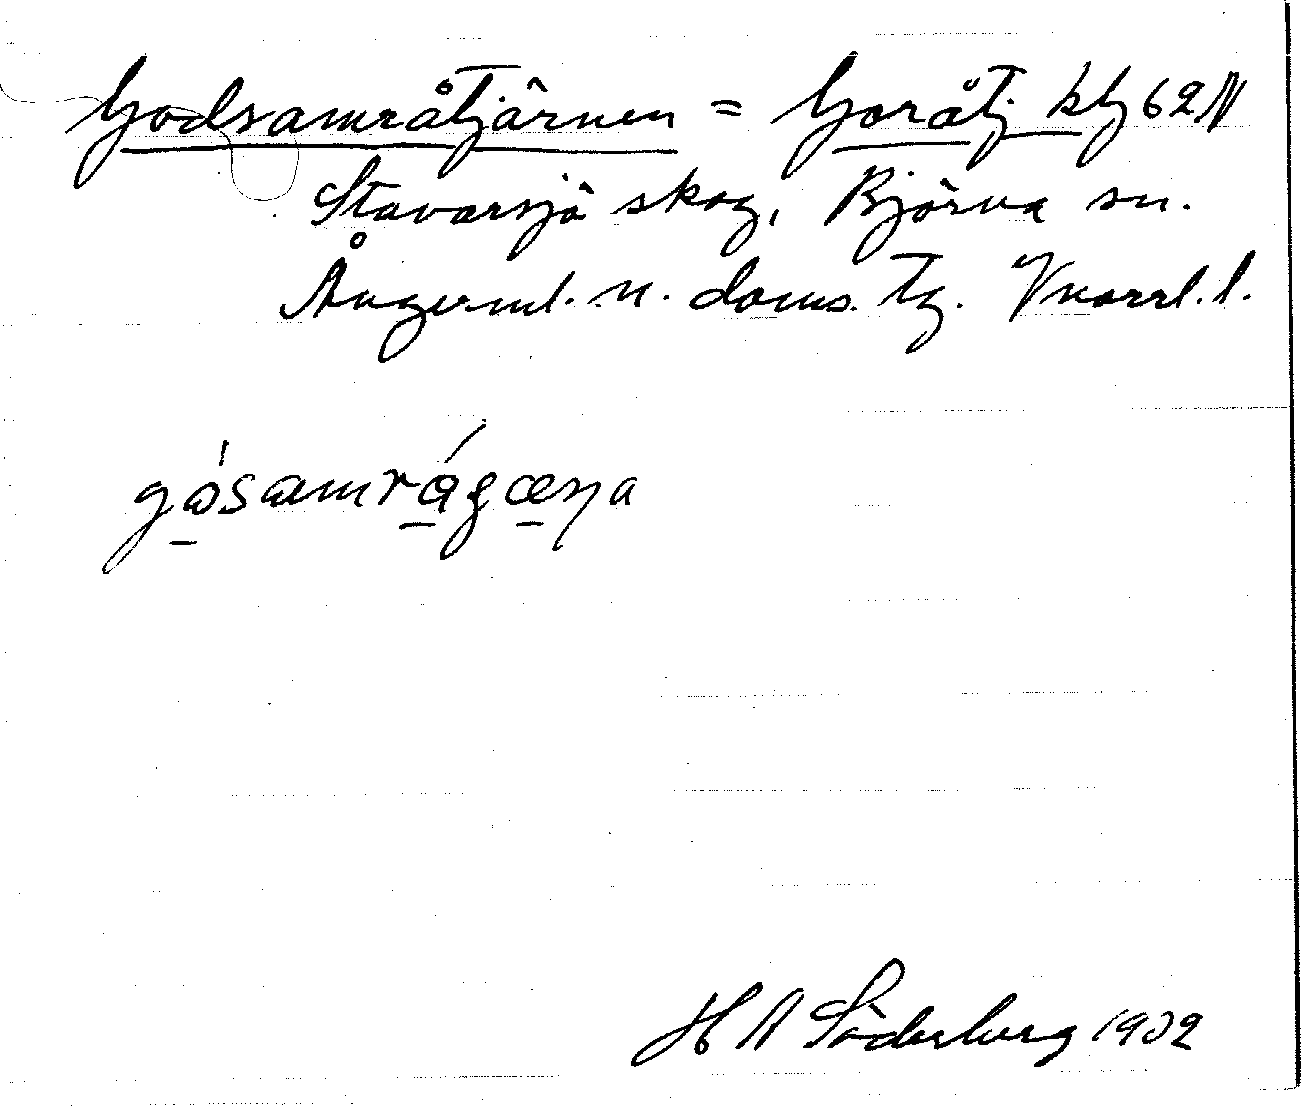 Godsamråtjärnen = Goråtj kbl 62 N
Stavarsjö skog, Björna sn.
Ångerml. n. doms. tg. Vnorrl. l.
gósamrágæna
H A Söderberg 1932